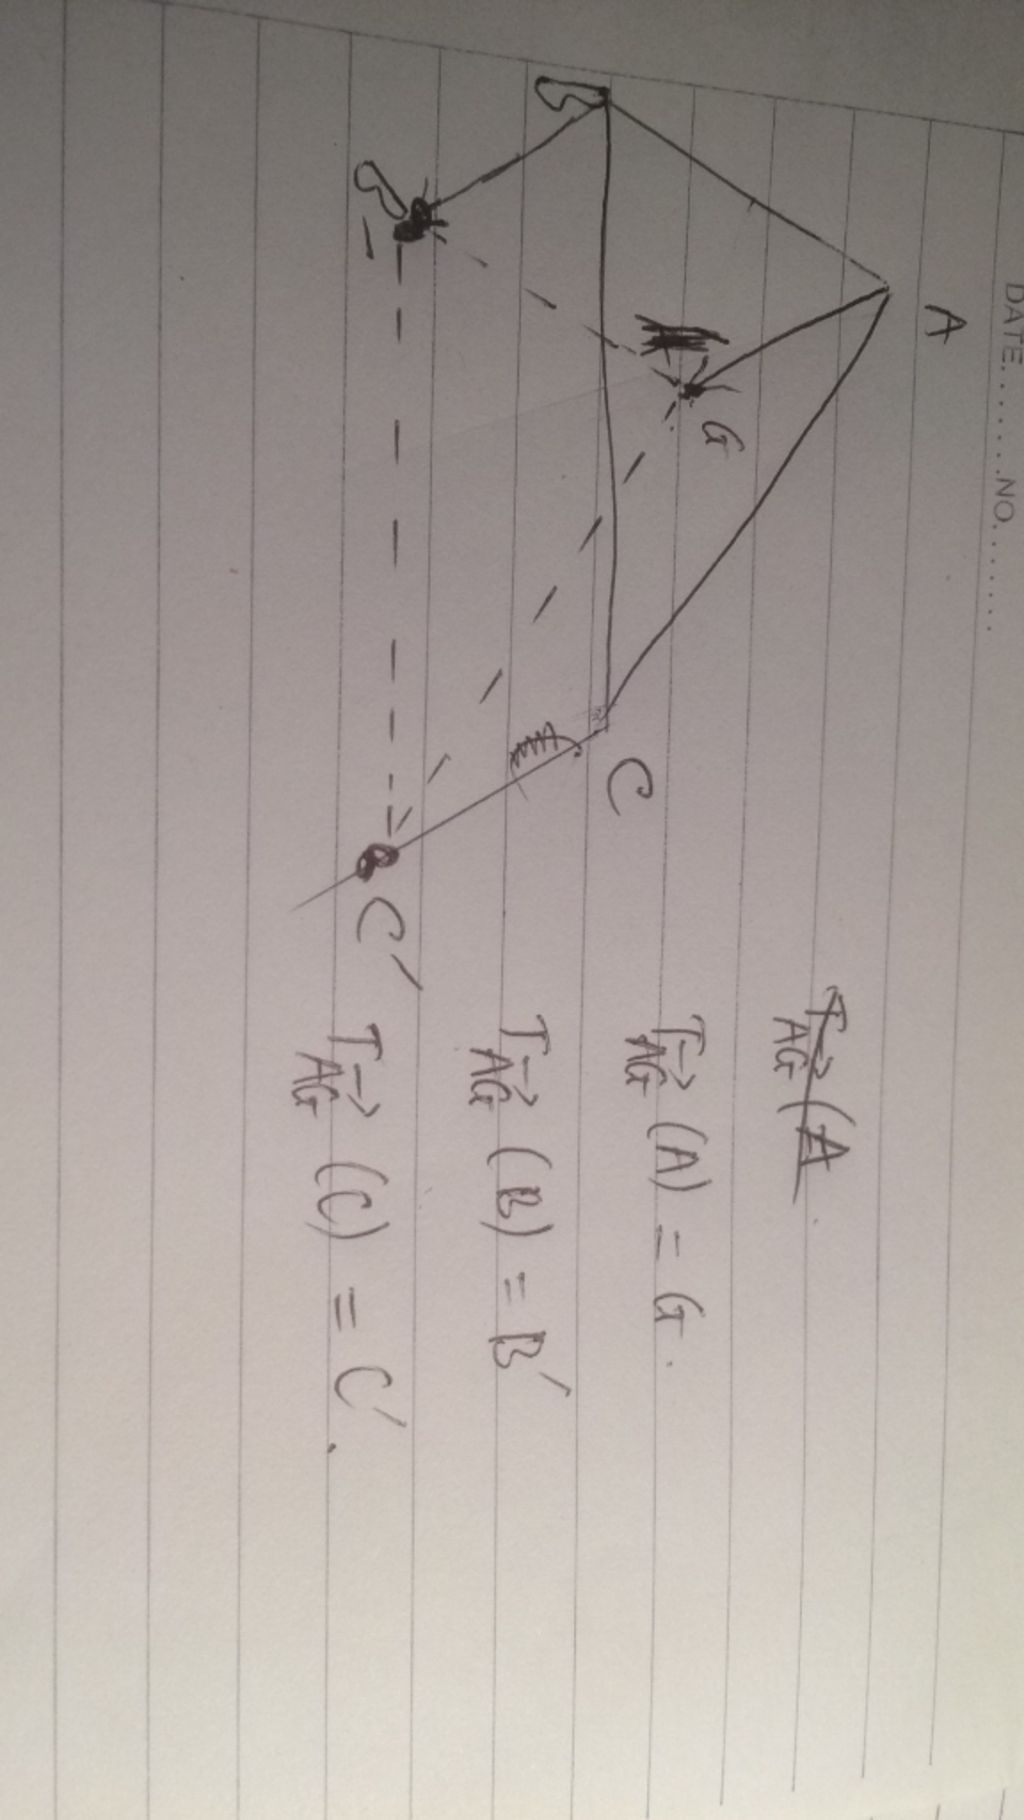 DATE.......NO.......
A
B
G
C
B'
C'
T→AG (A
T→AG (A) = G.
T→AG (B) = B'
T→AG (C) = C'.